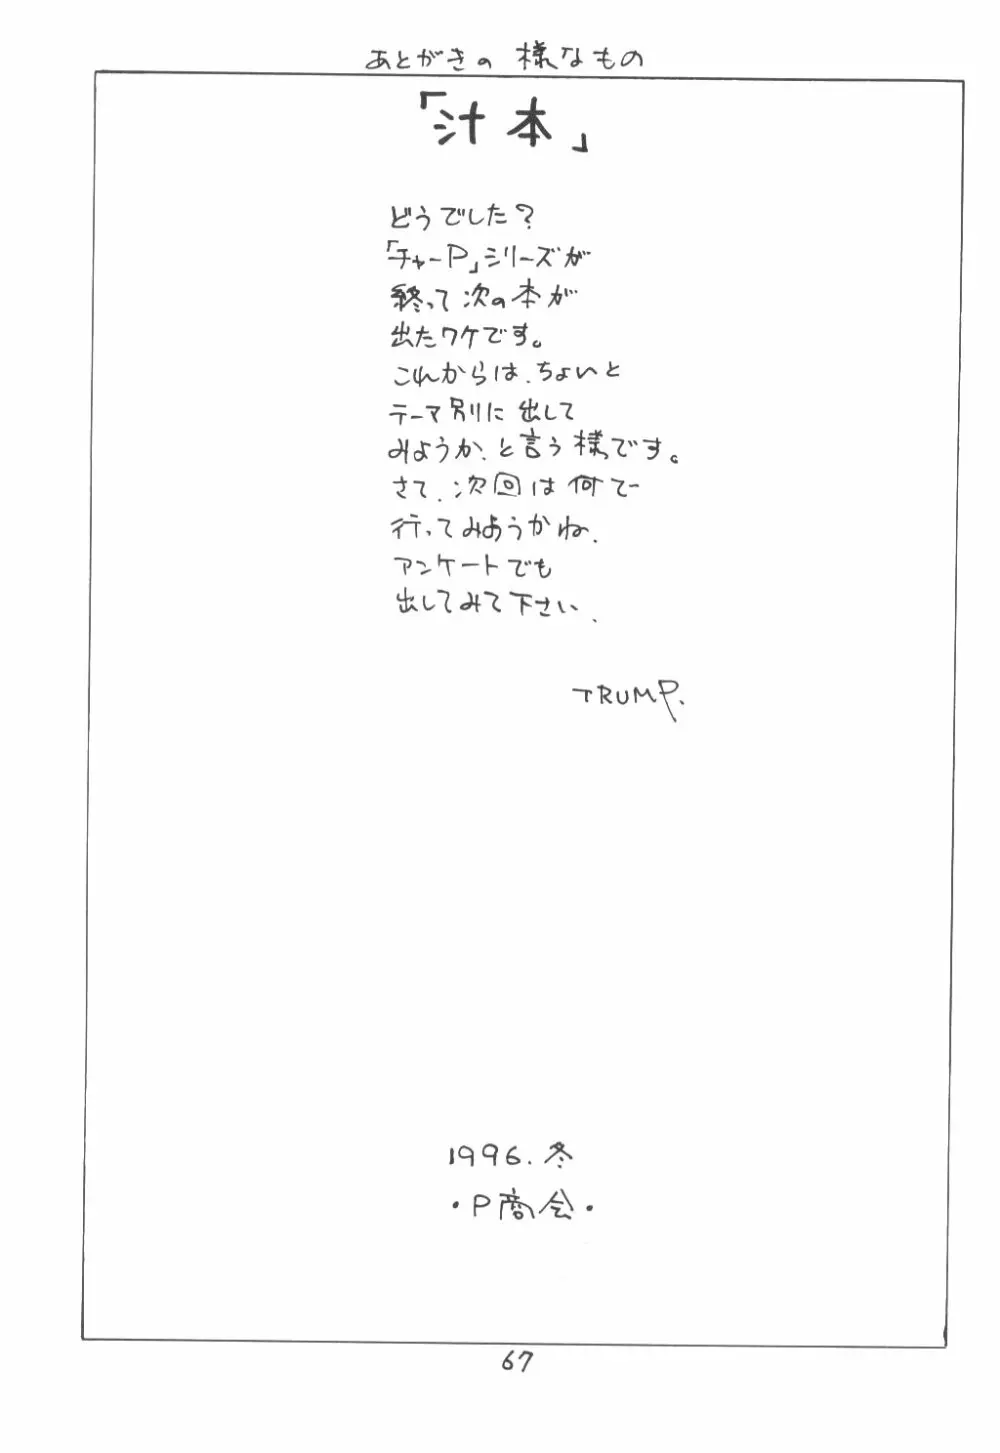 あとがきの様なもの
「汁本」
どうでした?
「チャーP」シリーズが
終って次の本が
出たワケです。
これからは、ちょいと
テーマ別に出して
みようか、と言う様です。
さて、次回は何で
行ってみようかね、
アンケートでも
出してみて下さい、
TRUMP.
1996.冬
・P商会・
67